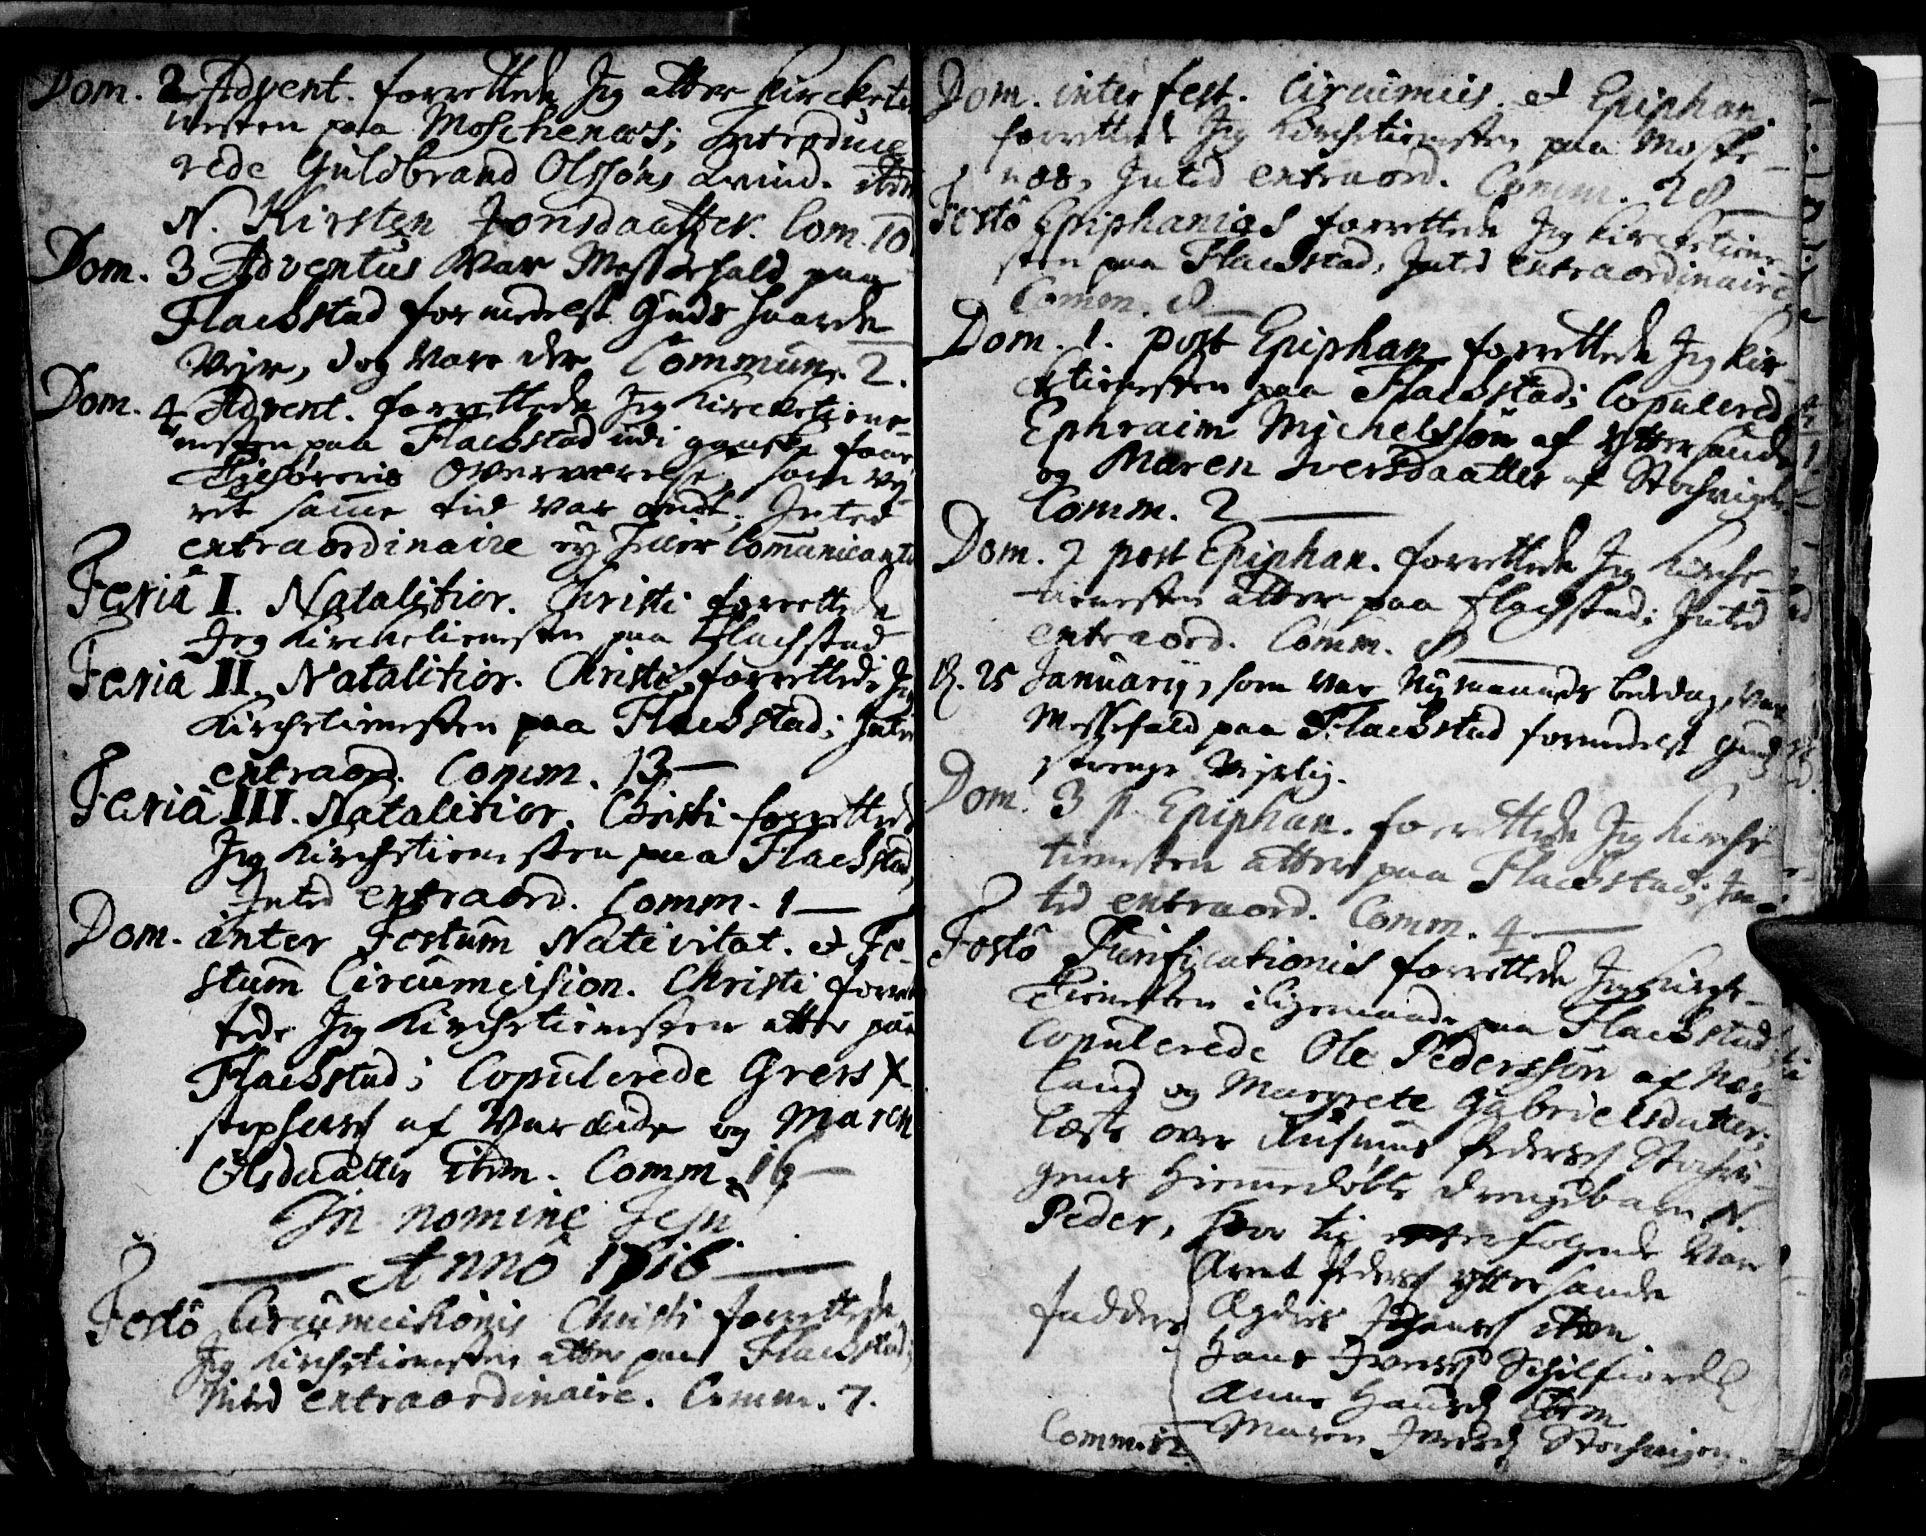 Dom. 2 Advent. forrettede Jeg atter Kirketie
nesten paa Moschenæs; Introduce
rede Guldbrand Olssøns qvind. item
N. Kirsten Jonsdaatter. Com. 10
Dom. 3 Adventus Var Messefald paa
Flachstad formedelst Guds haarde
Vejr, dog Vare der Commun. 2.
Dom. 4 Advent. forrettede Jeg Kircketiene-
nesten paa Flachstad udi ganske faa
Tilhøreris Overværelse, som vej-
ret samme tid var ondt; Inted
extraordinaire ey heller Communicant
Feriâ I. Natalitior. Christi forrettede
Jeg Kirchetienesten paa Flachstad
Feriâ II. Natalitior. Christi, forrettede Jeg
Kirchetienesten paa Flachstad; Inted
extraord. Comm. 13
Feriâ III. Natalitior. Christi forrettede
Jeg Kirchetienesten paa Flachstad,
Inted extraord. Comm. 1
Dom. inter Festum Nativitat. et Fe-
stum Circumcision. Christi forret
tede Jeg Kirchetienesten atter paa
Flachstad; Copulerede Grers X
stophers af Vareide og Maren
Olsdaatter item. Comm. 16
In nomine Jesu
Anno 1716
Festô Circumcisionis Christi forrettede
Jeg Kirchetienesten atter paa Flachstad;
Inted extraordinaire. Comm. 7.
Dom. inter fest. Circumcis. et Epiphan.
forrettede Jeg Kirchetienesten paa Moske-
næs, Inted extraord. Comm. 28
Festô Epiphanias forrettede Jeg Kirchetiene-
sten paa Flachstad, Inted extraordinaire
Comm. 8
Dom. 1. post Epiphan forrettede Jeg Kir-
chetienesten paa Flachstad; Copulerede
Ephraim Michelssøn af Yttersande
og Maren Iversdaatter af Stochvigen
Comm. 2
Dom. 2 post Epiphan. forrettede Jeg Kirche-
tienesten atter paa Flachstad; Inted
extraord. Comm. 8
D. 25 Januarij, som var Nymaaneds bededag, Var
Messefald paa Flachstad formedelst Guds
strenge Vejrlig.
Dom. 3 p. Epiphan. forrettede Jeg Kirche
tienesten atter paa Flachstad; In-
ted extraord. Comm. 4
Festô Purificationis forrettede Jeg Kirche-
tienesten ligemaade paa Flachstad,
Copulerede Ole Pederssøn af Næs-
land og Margrete Gabrielsdatter;
Læste over Rasmus Peders Stochvi-
gens Hiemmedøbte drengebarn N.
Peder, hvor til efterfølgende Var
Arent Peders Yttersande
faddere Johans item
Hans Ivers Schilfiord
Anne Hansd item
Comm. 12 Maren Iversd Stochvigen.